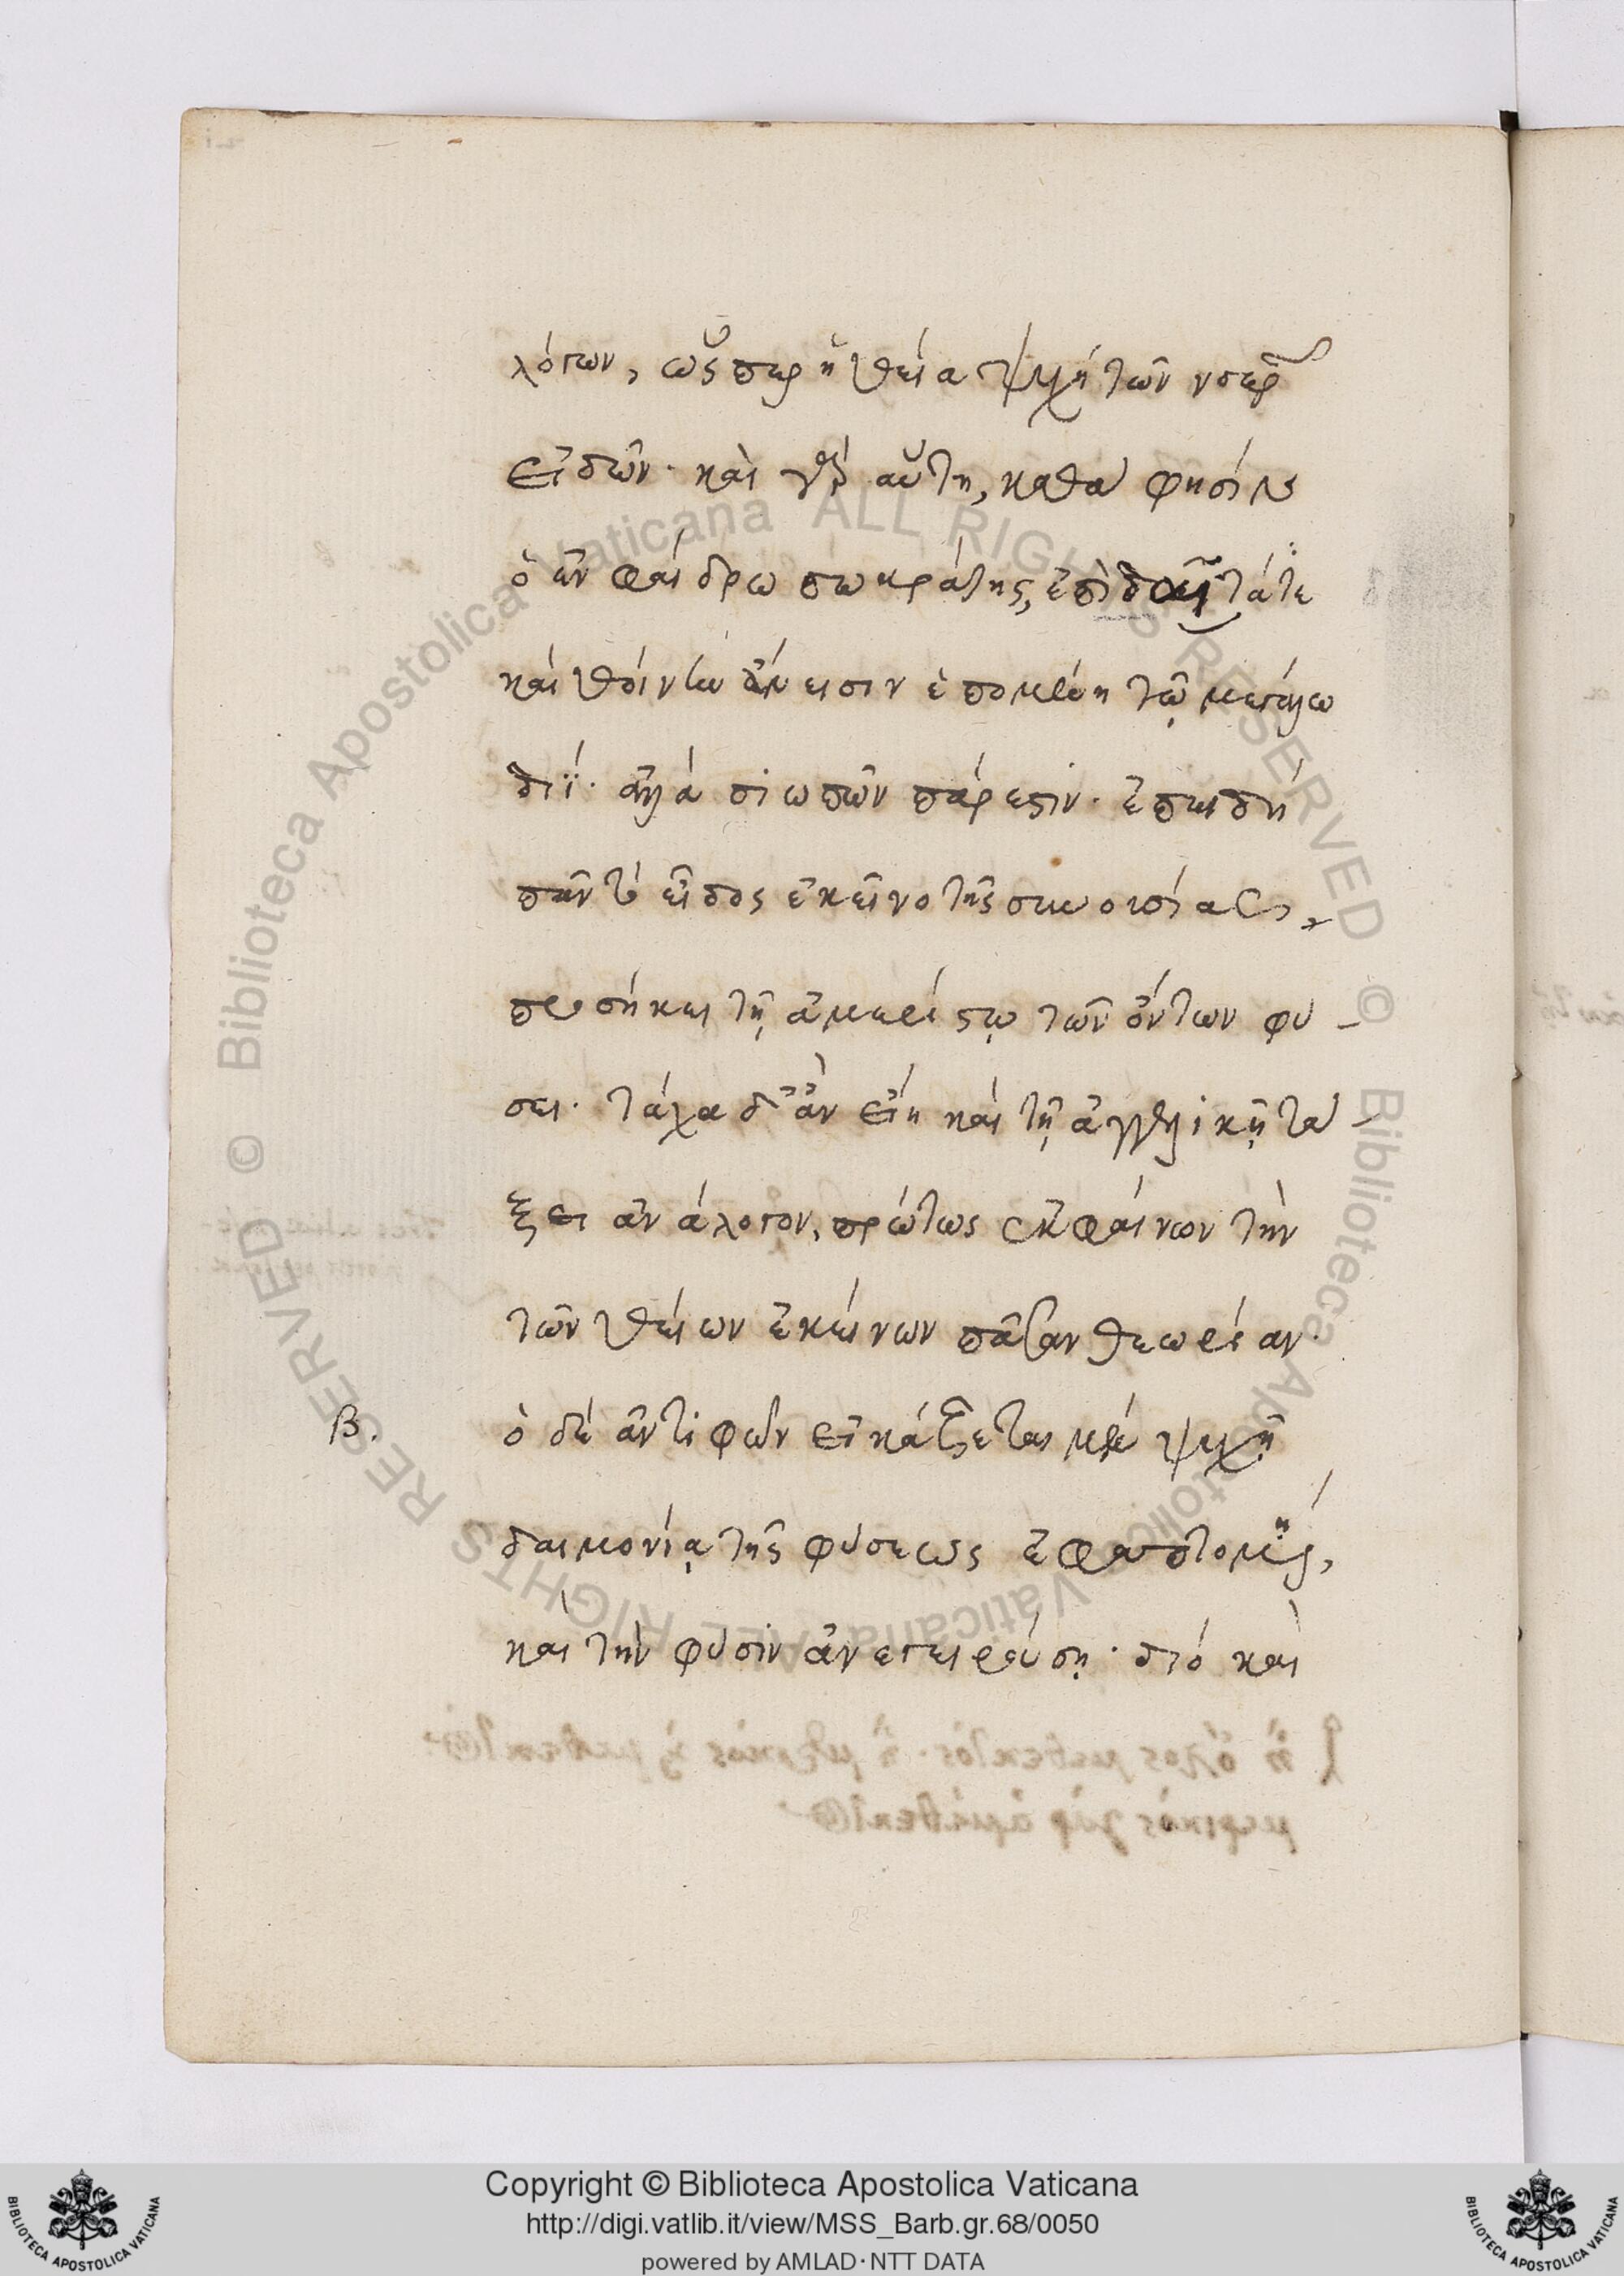 λόγων, ὥσπερ ἡ θεία ψυχή τῶν νοερῶν
εἰδῶν· καὶ γὰρ αὕτη, καθά φησίν
ὁ ἐν φαίδρω σωκράτης, ἐπὶ δαῖτά τε
καὶ θοίνην ἄνεισιν ἑπομένη τῷ μεγάλω
διΐ· ἀλλὰ σιωπῶν πάρεστιν· ἐπειδή
πᾶν τὸ εἶδος ἐκεῖνο τῆς συνουσίας,
προσήκει τῇ ἀμερίστῳ τῶν ὄντων φύ-
σει· τάχα δ' ἂν εἴη καὶ τῇ ἀγγελικῇ τά-
ξει ἀνάλογον, πρώτως ἐκφαίνων τὴν
τῶν θείων ἐκείνων πᾶσαν θεωρίαν·
Β.
ὁ δέ ἀντιφῶν εἰκάζεται μέν ψυχῇ
δαιμονίᾳ τῆς φύσεως ἐφαπτομένῃ,
καὶ τὴν φύσιν ἀνεγειρούσῃ· διό καὶ
Copyright © Biblioteca Apostolica Vaticana
http://digi.vatlib.it/view/MSS_Barb.gr.68/0050
powered by AMLAD · NTT DATA